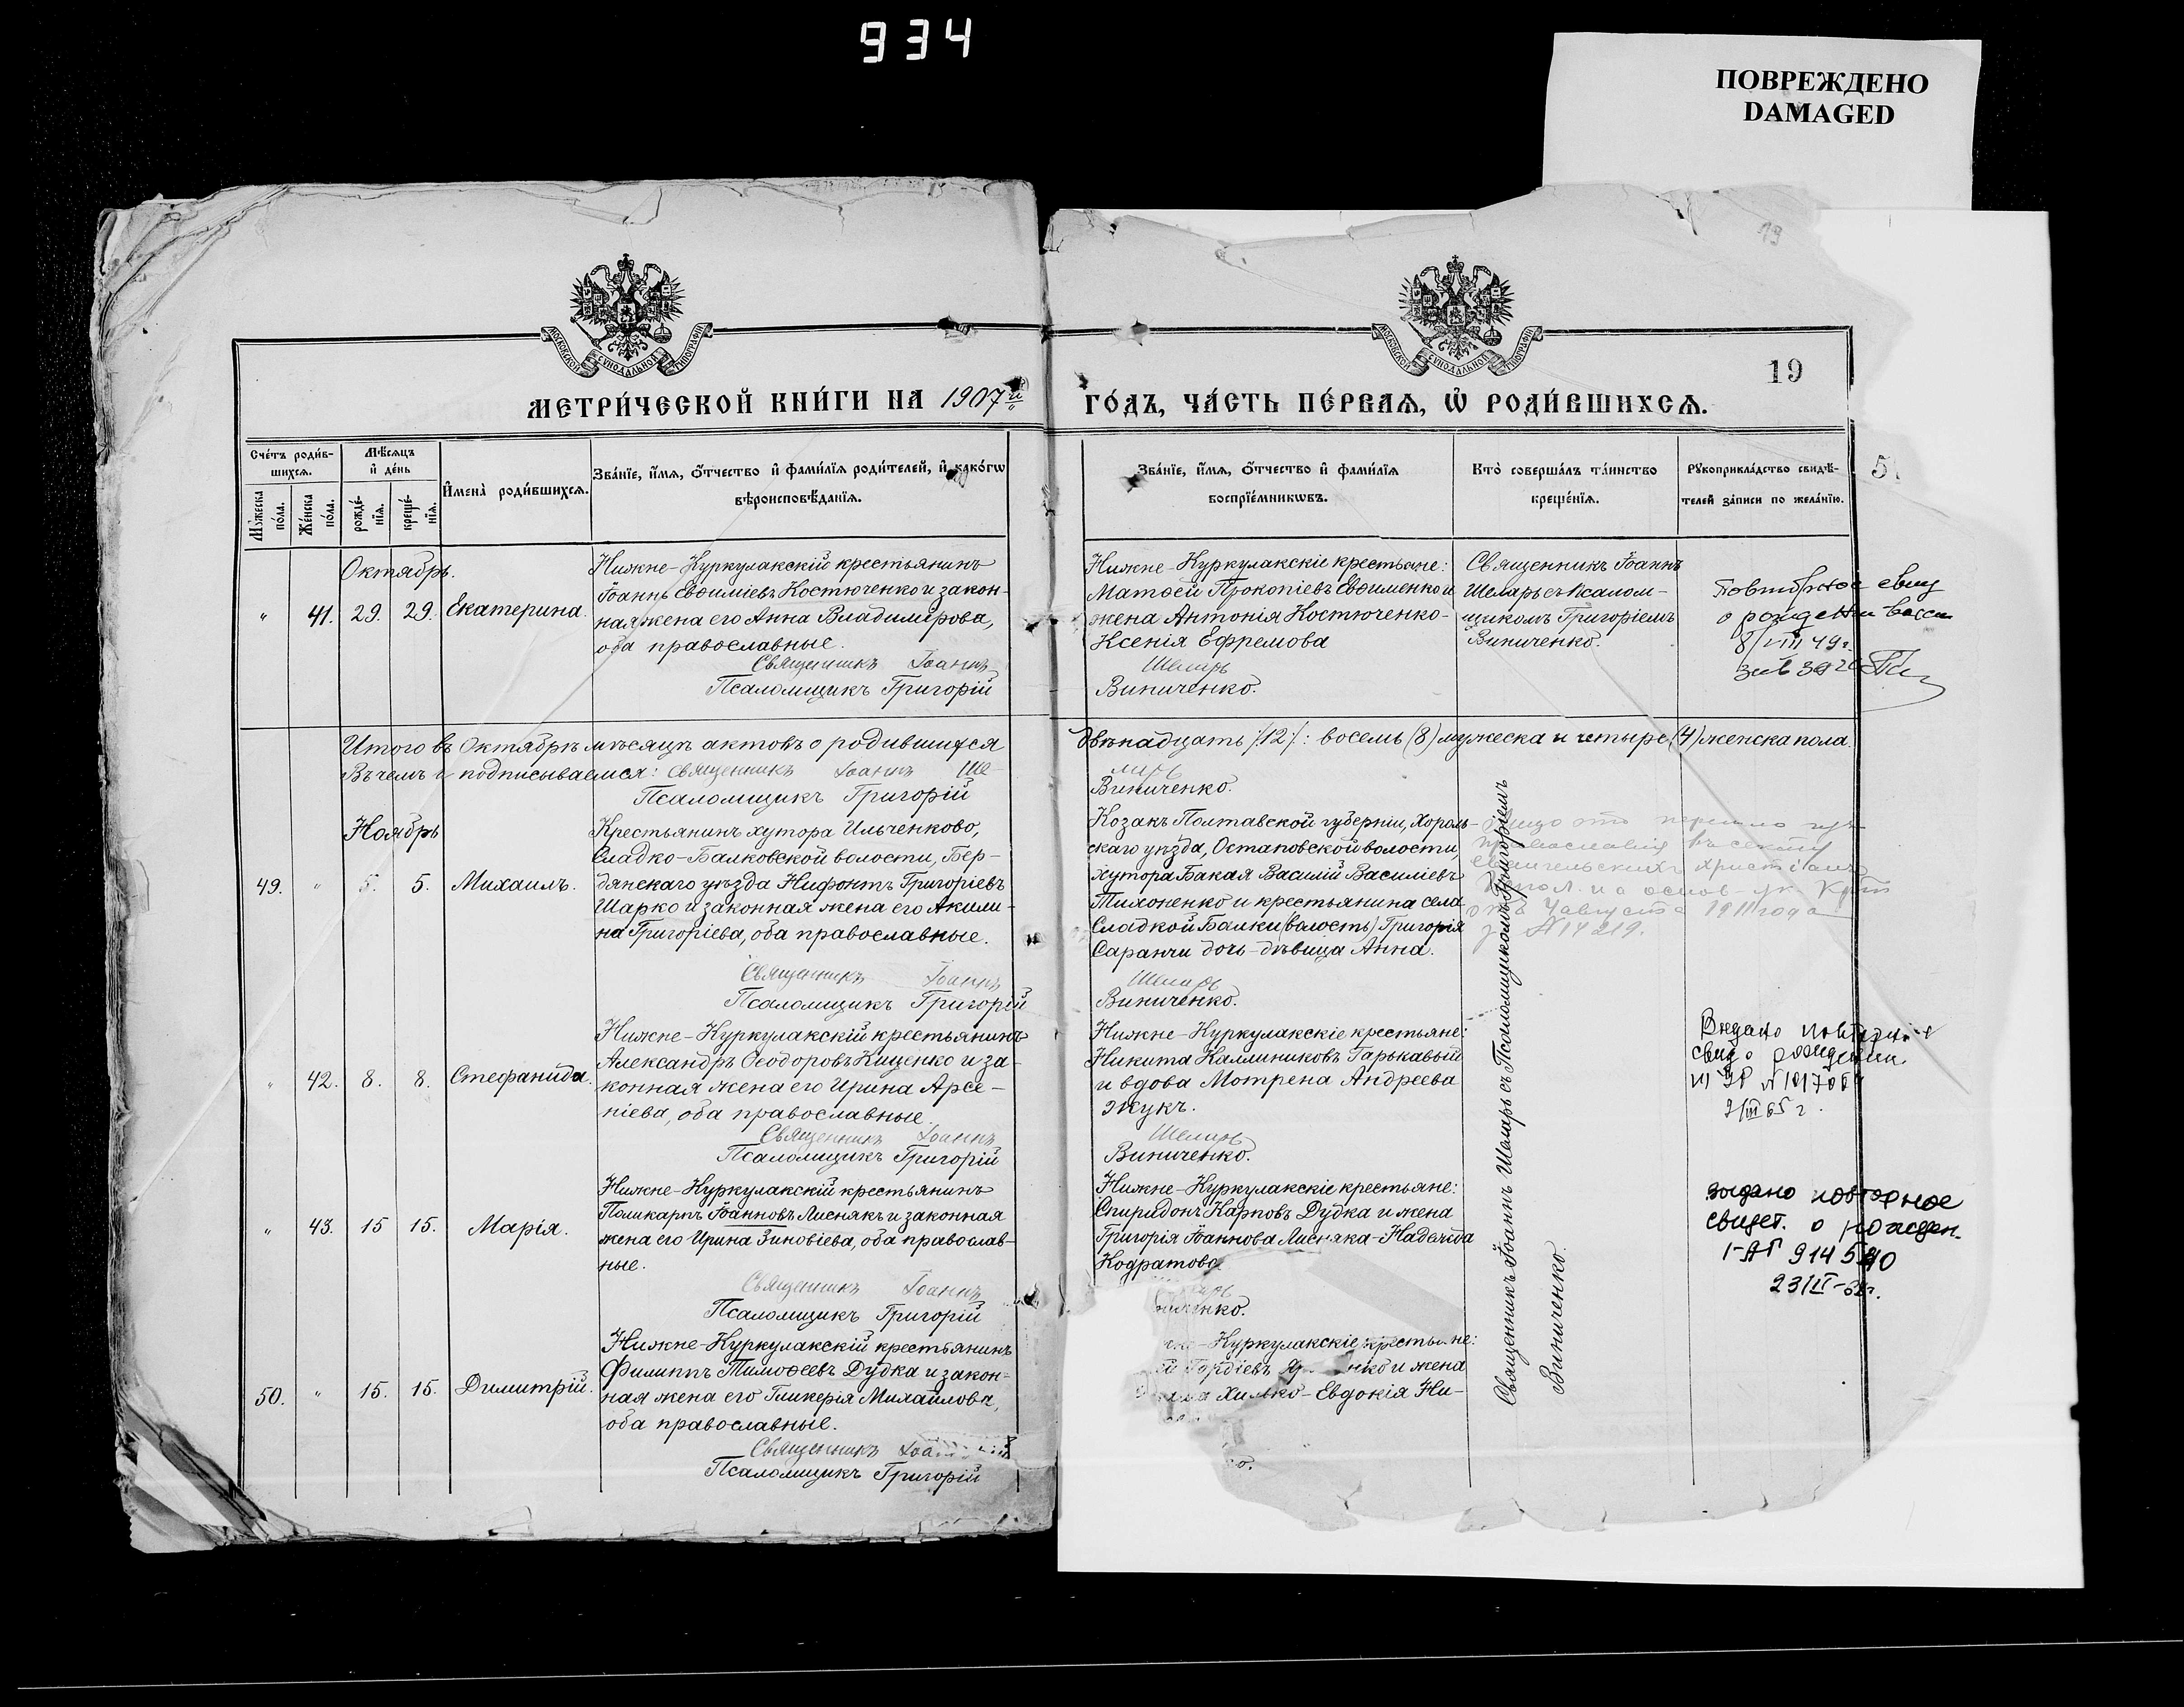 934
ПОВРЕЖДЕНО
DAMAGED
19
МОСКОВСКОЙ СУНОДАЛЬНОЙ ТИПОГРАФІИ
МОСКОВСКОЙ СУНОДАЛЬНОЙ ТИПОГРАФІИ
19
МЕТРИ́ЧЕСКОЙ КНИ́ГИ НА 1907й
ГО́ДЪ, ЧА́СТЬ ПЕ́РВАѦ, Ѡ РОДИ́ВШИХСѦ.
Сче́тъ роди́в-
шихсѧ.
Мꙋ́жеска по́ла.
Же́нска по́ла.
Мѣ́сѧцъ
и҆ де́нь
рожде́-
нїѧ.
креще́-
нїѧ.
И҆мена̀ роди́вшихсѧ.
Зва́нїе, и҆́мѧ, ѻ҆́тчество и҆ фами́лїѧ роди́телей, и҆ како́гѡ
вѣроисповѣ́данїѧ.
Зва́нїе, и҆́мѧ, ѻ҆́тчество и҆ фами́лїѧ
воспрїе́мникѡвъ.
Кто̀ соверша́лъ та́инство
креще́нїѧ.
Рꙋкоприкла́дство свидѣ́-
телей за́писи по жела́нїю.
5
Октябрь.
" 41. 29. 29. Екатерина.
Нижне-Куркулакскій крестьянинъ
Іоаннъ Евѳиміевъ Костюченко и закон-
ная жена его Анна Владимірова,
оба православные.
Священникъ Іоаннъ
Псаломщикъ Григорій
Нижне-Куркулакскіе крестьяне:
Матѳей Прокопіевъ Евѳименко и
жена Антонія Костюченко-
Ксенія Ефремова
Шемарь
Виниченко.
Священникъ Іоаннъ
Шемарь съ Псалом-
щикомъ Григоріемъ
Виниченко.
Повторное свид
о рождении
8/VIII 49г.
Итого въ Октябрѣ мѣсяцѣ актовъ о родившихся
двѣнадцать /12/: восемь (8) мужеска и четыре (4) женска пола.
Въ чемъ и подписываемся: Священникъ Іоаннъ Ше-
марь
Псаломщикъ Григорій
Виниченко.
Ноябрь
49. " 5. 5. Михаилъ.
Крестьянинъ хутора Ильченково,
Сладко-Балковской волости, Бер-
дянскаго уѣзда Нифонтъ Григоріевъ
Шарко и законная жена его Акили-
на Григоріева, оба православные.
Священникъ Іоаннъ
Псаломщикъ Григорій
Козакъ Полтавской губерніи, Хороль-
скаго уѣзда, Остаповской волости,
хутора Бакая Василій Василіевъ
Тихоненко и крестьянина села
Сладкой Балки (волость) Григорія
Саранчи дочь-дѣвица Анна.
Шемарь
Виниченко.
лицо это перешло изъ
православія въ секту
евангельскихъ христіанъ
4 августа 1911 года
№ 14219.
Священникъ Іоаннъ Шемарь съ Псаломщикомъ Григоріемъ
Виниченко.
" 42. 8. 8. Стефанида.
Нижне-Куркулакскій крестьянинъ
Александръ Ѳеодоровъ Кищенко и за-
конная жена его Ирина Арсе-
ніева, оба православные.
Священникъ Іоаннъ
Псаломщикъ Григорій
Нижне-Куркулакскіе крестьяне:
Никита Каллиниковъ Гарькавый
и вдова Мотрена Андреева
Жукъ.
Шемарь
Виниченко.
Видано повторне
свид о рождении
2/III 65 г.
" 43. 15 15. Марія.
Нижне-Куркулакскій крестьянинъ
Поликарпъ Іоанновъ Лиснякъ и законная
жена его Ирина Зиновіева, оба православ-
ные.
Священникъ Іоаннъ
Псаломщикъ Григорій
Нижне-Куркулакскіе крестьяне:
Спиридонъ Карповъ Дудка и жена
Григорія Іоаннова Лисняка-Надежда
Кодратова
выдано повторное
свидет. о рожден.
50. " 15. 15. Димитрій.
Нижне-Куркулакскій крестьянинъ
Филиппъ Тимоѳеевъ Дудка и закон-
ная жена его Гликерія Михайлова,
оба православные.
Священникъ
Псаломщикъ Григорій
-Куркулакскіе крестьяне:
Гордіевъ и жена
Хилько-Евдокія Ни-